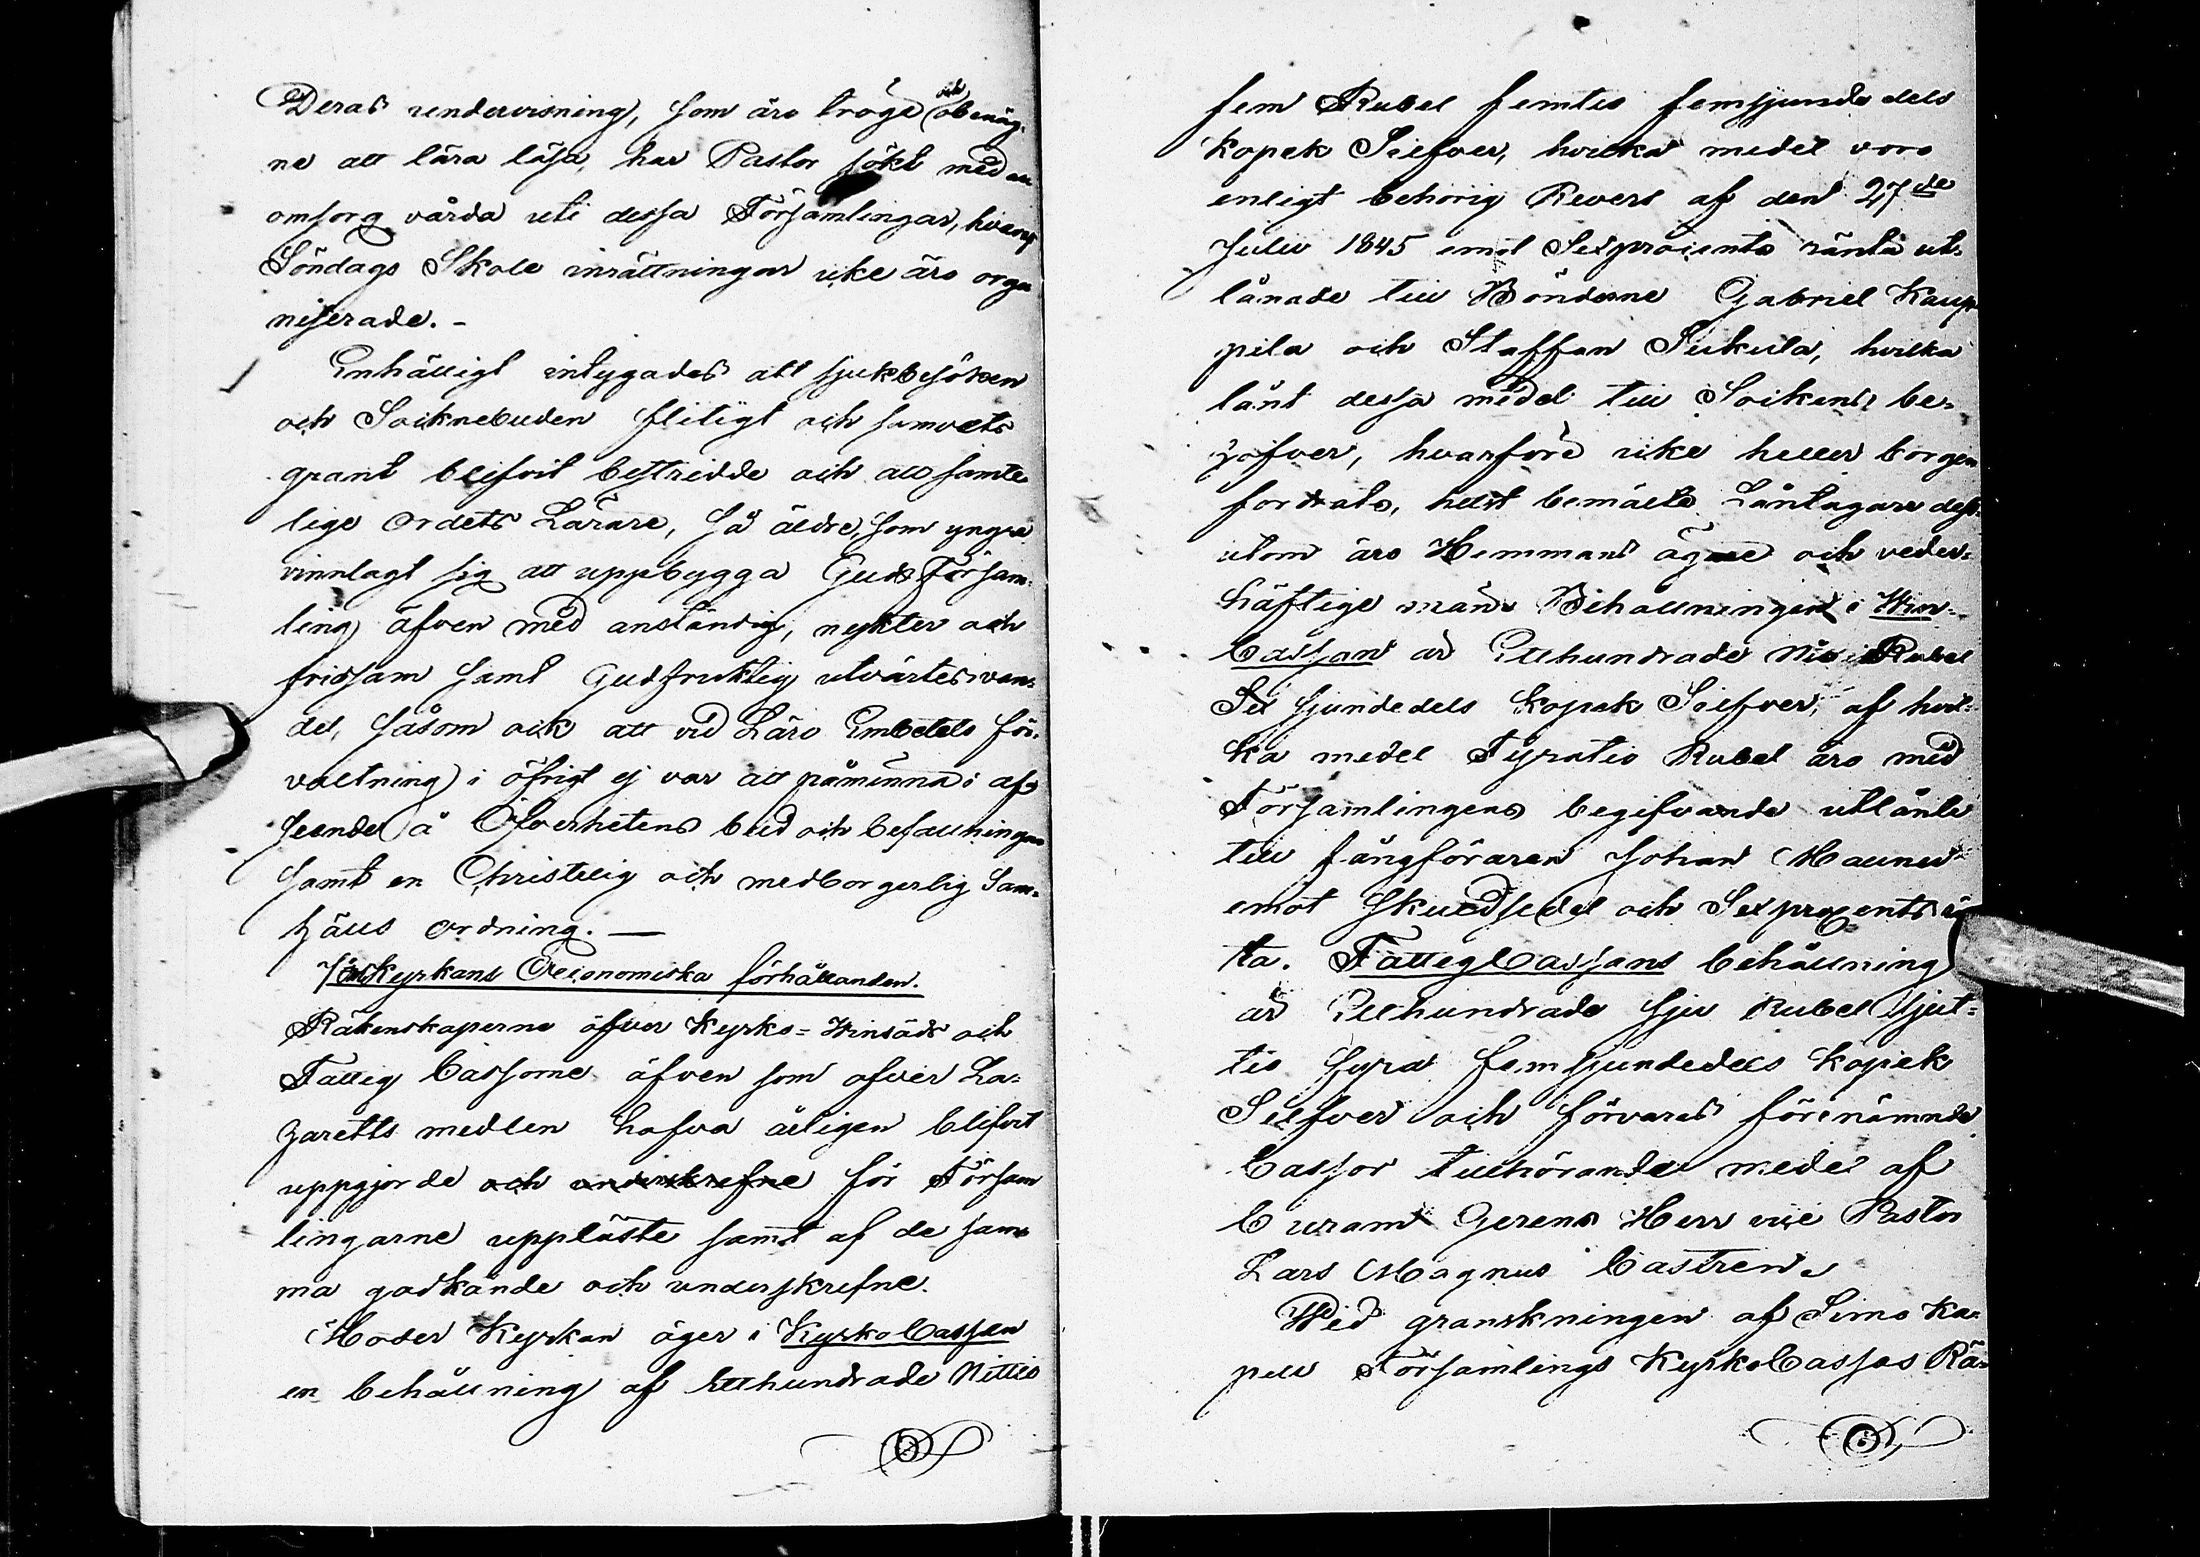 Deras undervisning, som äro tröge och obenäg-
ne att lära läsa, har Pastor sökt med all
omsorg vårda uti dessa Församlingar, hvarest
Söndags Skole inrättningar icke äro orga
niserade. -
Enhälligt intygades att sjukbesöken
och Socknebuden flitigt och samvets
grant blifvit bestridde och att samte
lige Ordets Lärare, så äldre, som yngre
vinnlagt sig att uppbygga Guds Försam-
ling äfven med anständig, nykter och
fridsam samt Gudfruktig utvärtes van-
del, såsom ock att vid Läro Embetets för-
valtning i öfrigt ej var att påminna i af-
seende å Öfverhetens bud och befallningar
samt en Christelig och medborgerlig Sam-
hälls ordning. —
7 Kyrkans Oeconomiska förhållanden.
Räkenskaperne öfver Kyrko- Winsäds och
Fattig Cassorne äfven som öfver La-
zaretts medlen hafva årligen blifvit
uppgjorde och underskrefne för Försam
lingarne uppläste samt af de sam
ma godkände och underskrefne.
Moder Kyrkan äger i Kyrko Cassan
en behållning af Etthundrade Nittio
fem Rubel femtio femsjunde dels
Kopek Silfver, hvilka medel voro
enligt behörig Revers af den 27de
Julii 1845 emot Sexprocents ränta ut-
lånade till Bönderne Gabriel Kaup
pila och Staffan Sukula, hvilka
lånt dessa medel till Sockens be-
hofver, hvarföre icke heller borgen
fordrats, helst bemälte Låntagare dess-
utom äro Hemmans ägare och veder-
häftige män. Behållningen i Win-
Cassan är Etthundrade Nio Rubel
Sex sjundedels Kopek Silfver, af hvil-
ka medel Fyratio Rubel äro med
Församlingens begifvande utlånte
till fångföraren Johan Hannu
emot Skuldsedel och Sexprocents rän
ta. Fattig Cassans behållning
är Etthundrade sju Rubel sjut-
tio fyra femsjundedels Kopek
Silfver och förvaras förenämnde
Cassor tillhörande medel af
Curam Gerens Herr vice Pastor
Lars Magnus Castrén.
Wid granskningen af Simo Ka-
pell Församlings Kyrko Cassas Rä-